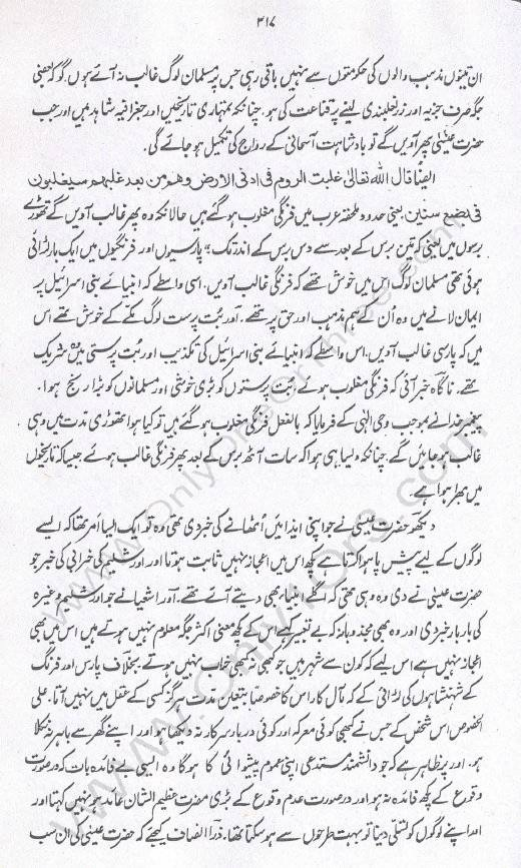 ۴۱۷
ان تینوں مذہب والوں کی حکومتوں سے نہیں باقی رہی جس پر مسلمان لوگ غالب نہ آئے ہوں گو کہ بعضی
جگہ صرف جزیہ اور زر نعلبندی لینے پر قناعت کی ہو، چنانچہ تمہاری تاریخیں اور جغرافیہ شاہد ہیں اور جب
حضرت عیسٰی پھر آویں گے تو بادشاہت آسمانی کے رواج کی تکمیل ہو جائے گی۔
ایضًا قال اللہ تعالیٰ غلبت الروم فی ادنی الارض وھم من بعد غلبھم سیغلبون
فی بضع سنین یعنی حدود ملحقہ عرب میں فرنگی مغلوب ہو گئے ہیں حالانکہ وہ پھر غالب آویں گے تھوڑے
برسوں میں یعنی کہ تین برس کے بعد سے دس برس کے اندر تک؟ پارسیوں اور فرنگیوں میں ایک بار لڑائی
ہوئی تھی مسلمان لوگ اس میں خوش تھے کہ فرنگی غالب آویں۔ اسی واسطے کہ انبیائے بنی اسرائیل پر
ایمان لانے میں وہ اُن کے ہم مذہب اور حق پر تھے۔ اور بُت پرست لوگ مکے کے خوش تھے اس
میں کہ پارسی غالب آویں۔ اس واسطے کہ انبیائے بنی اسرائیل کی تکذیب اور بُت پرستی میں وہ شریک
تھے۔ ناگاہ خبر آئی کہ فرنگی مغلوب ہوئے، بُت پرستوں کو بڑی خوشی اور مسلمانوں کو بڑا رنج ہوا۔
پیغمبر خدا نے بموجب وحی الٰہی کے فرمایا کہ بالفعل فرنگی مغلوب ہو گئے ہیں تو کیا ہوا تھوڑی مدت میں وہی
غالب ہو جائیں گے۔ چنانکہ ویسا ہی ہوا کہ سات آٹھ برس کے بعد پھر فرنگی غالب ہوئے جیسا کہ تاریخوں
میں بھرا ہوا ہے۔
دیکھو حضرت عیسٰی نے جو اپنی ایذائیں اُٹھانے کی خبر دی تھی وہ تو ایک ایسا اَمر تھا کہ ایسے
لوگوں کے لیے پیش پا ہوا کرتا ہے کچھ اس میں اعجاز نہیں ثابت ہوتا اور اورشلیم کی خرابی کی خبر جو
حضرت عیسٰی نے دی وہ وہی تھی کہ اگلے انبیاء بھی دیتے آئے تھے۔ اور اشعیا نے جو اورشلیم وغیرہ
کی بار بار خبر دی اور وہ بھی مجذوبانہ کہ بے تغییر کیے اس کے کچھ معنی اکثر جگہ معلوم نہیں ہوتے ہیں اس میں بھی
اعجاز نہیں ہے اس لیے کہ کون سے شہر ہیں جو کبھی نہ کبھی خراب نہیں ہوتے بخلاف پارس اور فرنگ
کے شہنشاہوں کی لڑائی کے کہ مآل کار اس کا خصوصا بتعین مدت ہرگز کسی کے عقل میں نہیں آتا۔ علی
الخصوص اس شخص کے جس نے کبھی کوئی معرکہ اور کوئی دربار سرکار نہ دیکھا ہو اور اپنے گھر سے باہر نہ نکلا
ہو۔ اور پر ظاہر ہے کہ جو دانشمند مستدعی اپنی عموم پیشوائی کا ہو گا وہ ایسی بے فائدہ بات کہ در صورت
وقوع کے کچھ فائدہ نہ ہو اور در صورت عدم وقوع کے بڑی مضرت عظیم الشان عائد ہو نہیں کہتا اور
اور اپنے لوگوں کو تسلّی دینا تو بہت طرحوں سے ہو سکتا تھا۔ ذرا انصاف کیجئے کہ حضرت عیسٰی کی ان سب
www.Only1Or3.com
www.OnlyOneOrThree.com